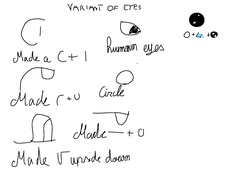 VARIANT OF EYES
Made a C + 1
Human eyes
Made r + U
Circle
Made — + 0
Made V upside down